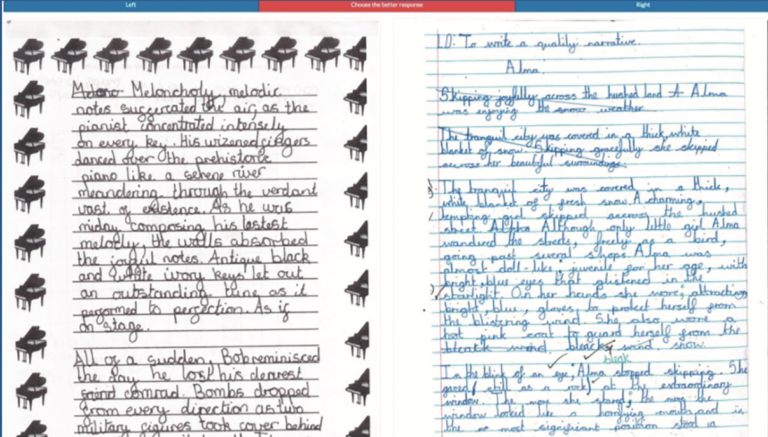 Left
Choose the better response
Right
Melancholy, melodic
notes suffocated the air, as the
pianist concentrated intensely
on every key. His wizened fingers
danced over the prehistoric
piano like a serene river
meandering through the verdant
vast of existence. As he was
miday composing his lastest
melody, the walls absorbed
the joyful notes. Antique black
and white ivory keys let out
an outstanding tune as it
performed to perfection. As if
on stage.
All of a sudden, Bob reminisced
the day he lost his dearest
comrad. Bombs dropped
from every direction as two
military figures took cover behind
L.O: To write a quality narrative.
Alma.
Skipping joyfully across the hushed land A Alma
was enjoying the snow weather.
The tranquil city was covered in a thick, white
blanket of snow. Skipping gracefully she skipped
across her beautiful surroundings.
The tranquil city was covered in a thick,
white blanket of fresh snow. A charming,
tempting girl skipped across the hushed
street. Although only little girl Alma
wandured the streets, freely as a bird,
going past several shops. Alma was
almost doll-like, juvenile for her age, with
bright, blue eyes that glistened in the
starlight. On her hands she wore, attractive
bright, blue, gloves to protect herself from
the blistering wind. She also wore a
hot pink coat to guard herself from the
bleak wind. snow.
bleak
In the blink of an eye, Alma stopped skipping. She
gazed, still as a rock, at the extraordinary
window. The way she stand, the way the
window looked like a horrifying mouth and is
the no most significant position stood is